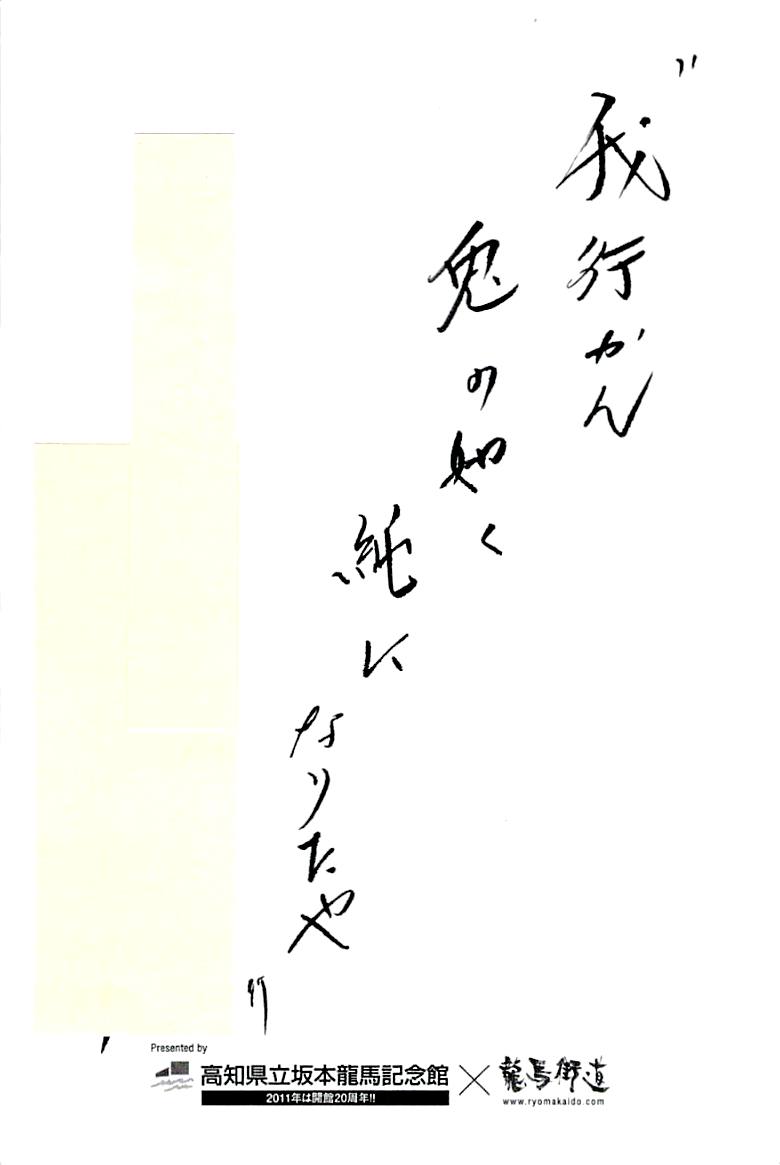 "我行かん
鬼の如く
純に
なりたや"
Presented by
高知県立坂本龍馬記念館
2011年は開館20周年!!
×
龍馬街道
www.ryomakaido.com